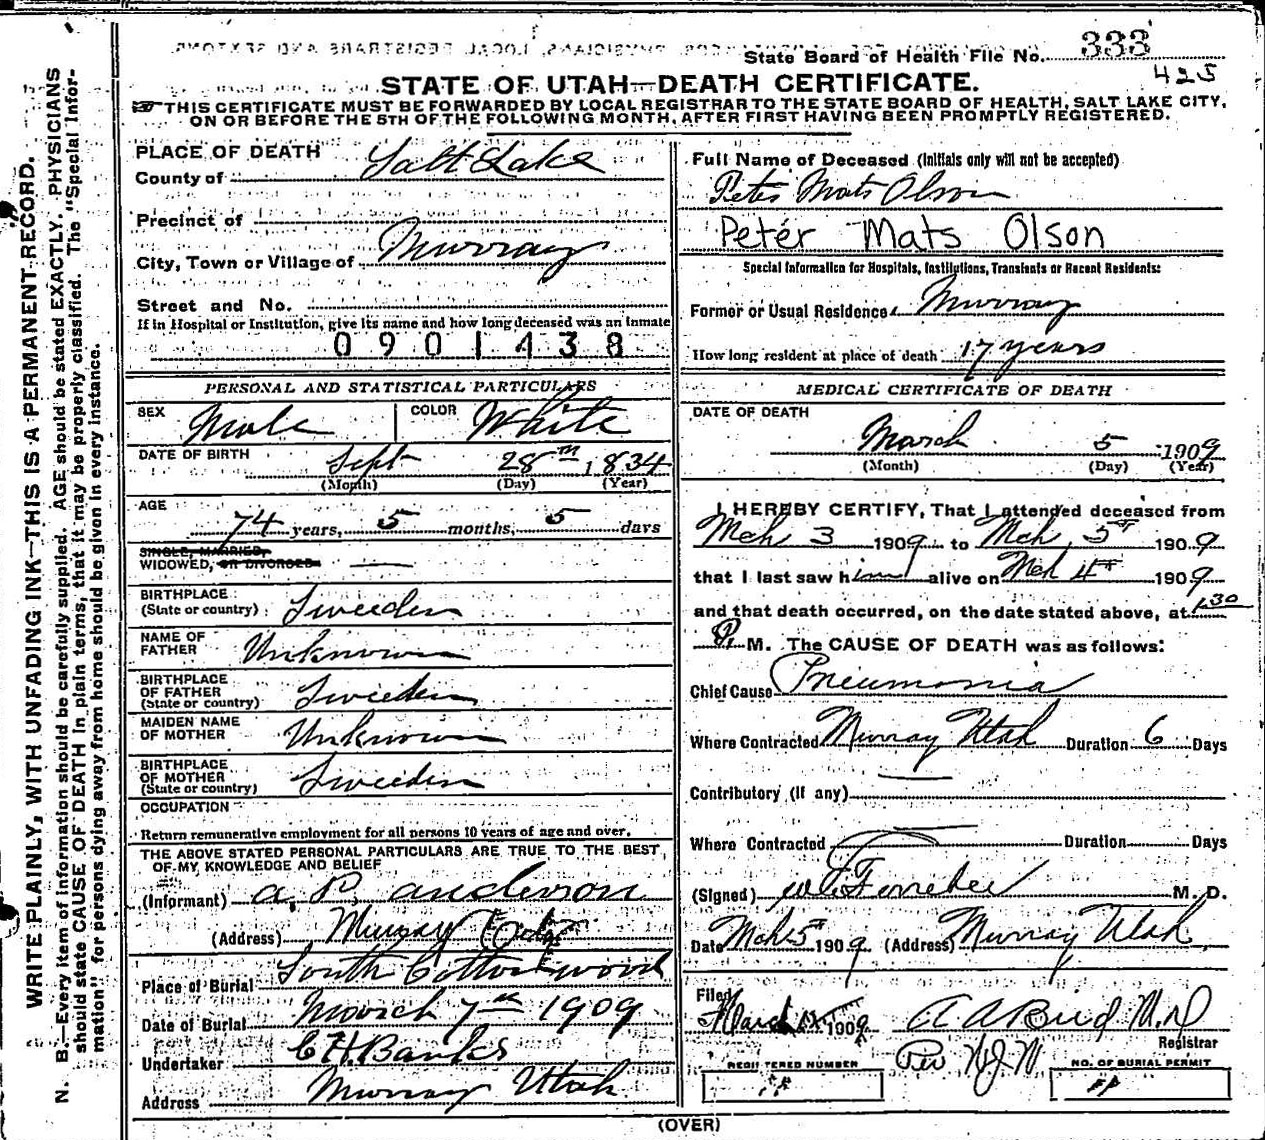 State Board of Health File No. 333
425
STATE OF UTAH—DEATH CERTIFICATE.
THIS CERTIFICATE MUST BE FORWARDED BY LOCAL REGISTRAR TO THE STATE BOARD OF HEALTH, SALT LAKE CITY,
ON OR BEFORE THE 5TH OF THE FOLLOWING MONTH, AFTER FIRST HAVING BEEN PROMPTLY REGISTERED.
WRITE PLAINLY, WITH UNFADING INK—THIS IS A PERMANENT RECORD.
N. B.—Every item of information should be carefully supplied. AGE should be stated EXACTLY. PHYSICIANS
should state CAUSE OF DEATH in plain terms, that it may be properly classified. The "Special Infor-
mation" for persons dying away from home should be given in every instance.
PLACE OF DEATH
County of Salt Lake
Precinct of
City, Town or Village of Murray
Street and No.
If in Hospital or Institution, give its name and how long deceased was an inmate
0901438
PERSONAL AND STATISTICAL PARTICULARS
SEX Male COLOR White
DATE OF BIRTH Sept 28th, 1834
(Month) (Day) (Year)
AGE
74 years, 5 months, 5 days
SINGLE, MARRIED,
WIDOWED, OR DIVORCED
BIRTHPLACE
(State or country) Sweeden
NAME OF
FATHER Unknown
BIRTHPLACE
OF FATHER
(State or country) Sweeden
MAIDEN NAME
OF MOTHER Unknown
BIRTHPLACE
OF MOTHER
(State or country) Sweeden
OCCUPATION
Return remunerative employment for all persons 10 years of age and over.
THE ABOVE STATED PERSONAL PARTICULARS ARE TRUE TO THE BEST
OF MY KNOWLEDGE AND BELIEF
(Informant) A. P. Anderson
(Address) Murray
Place of Burial South Cottonwood
Date of Burial March 7th 1909
Undertaker C H Banks
Address Murray Utah
Full Name of Deceased (Initials only will not be accepted)
Peter Mats Olson
Peter Mats Olson
Special Information for Hospitals, Institutions, Transients or Recent Residents:
Former or Usual Residence Murray
How long resident at place of death 17 years
MEDICAL CERTIFICATE OF DEATH
DATE OF DEATH
March 5 1909
(Month) (Day) (Year)
I HEREBY CERTIFY, That I attended deceased from
Mch 3 1909 to Mch 5th 1909
that I last saw him alive on Mch 4th 1909
and that death occurred, on the date stated above, at 1.30
P. M. The CAUSE OF DEATH was as follows:
Chief Cause Pneumonia
Where Contracted Murray Utah Duration 6 Days
Contributory (if any)
Where Contracted Duration Days
(Signed) Ferrebee M. D.
Date Mch 5th 1909 (Address) Murray Utah
Filed
March 1909 Registrar
REGISTERED NUMBER
NO. OF BURIAL PERMIT
(OVER)